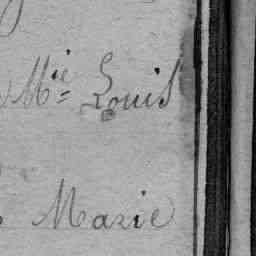 Mie Louis
Marie